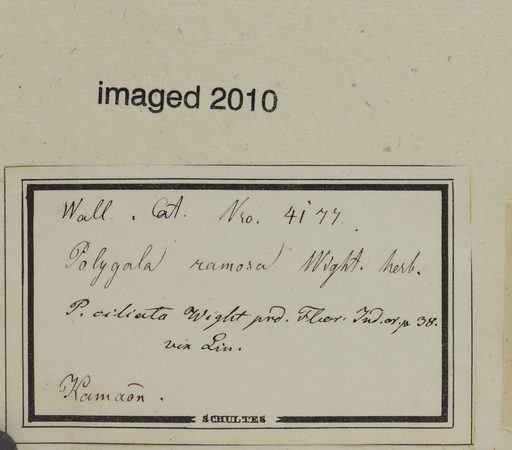 imaged 2010
Wall. Cat. Nro. 4177
Polygala ramosa Wight. herb.
P. ciliata Wight prd. Flor. Ind. or. p 38.
vix Lin.
Kamaon.
SCHULTES